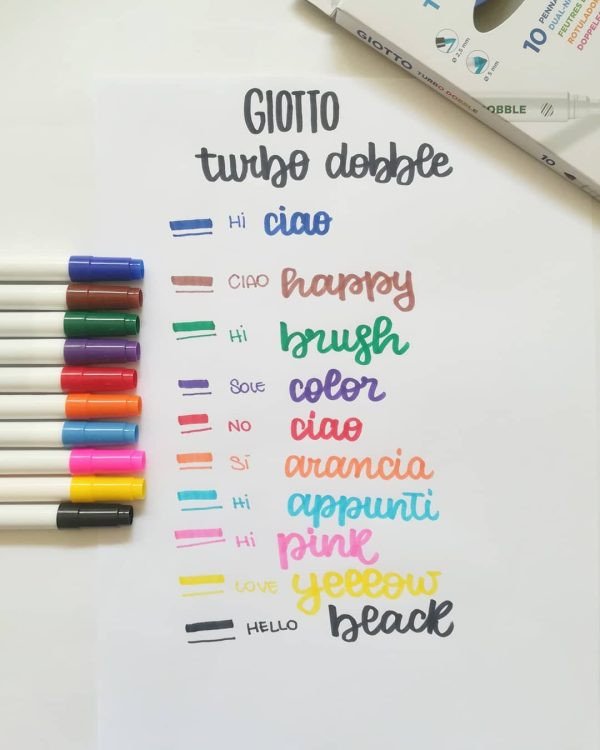 10 PENNA
DUAL-N
FEUTRES
ROTULADO
DOPPELF
Ø 2,5 mm
Ø 5 mm
GIOTTO TURBO DOBBLE
OBBLE
10
GIOTTO
turbo dobble
Hi ciao
CIAO happy
Hi brush
SOLE color
NO ciao
Sì arancia
Hi appunti
Hi pink
LOVE yellow
HELLO black